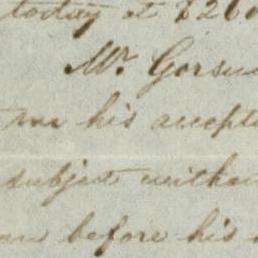 today at $260
Mr. Gorsu
me his accepta
subject withou
before his